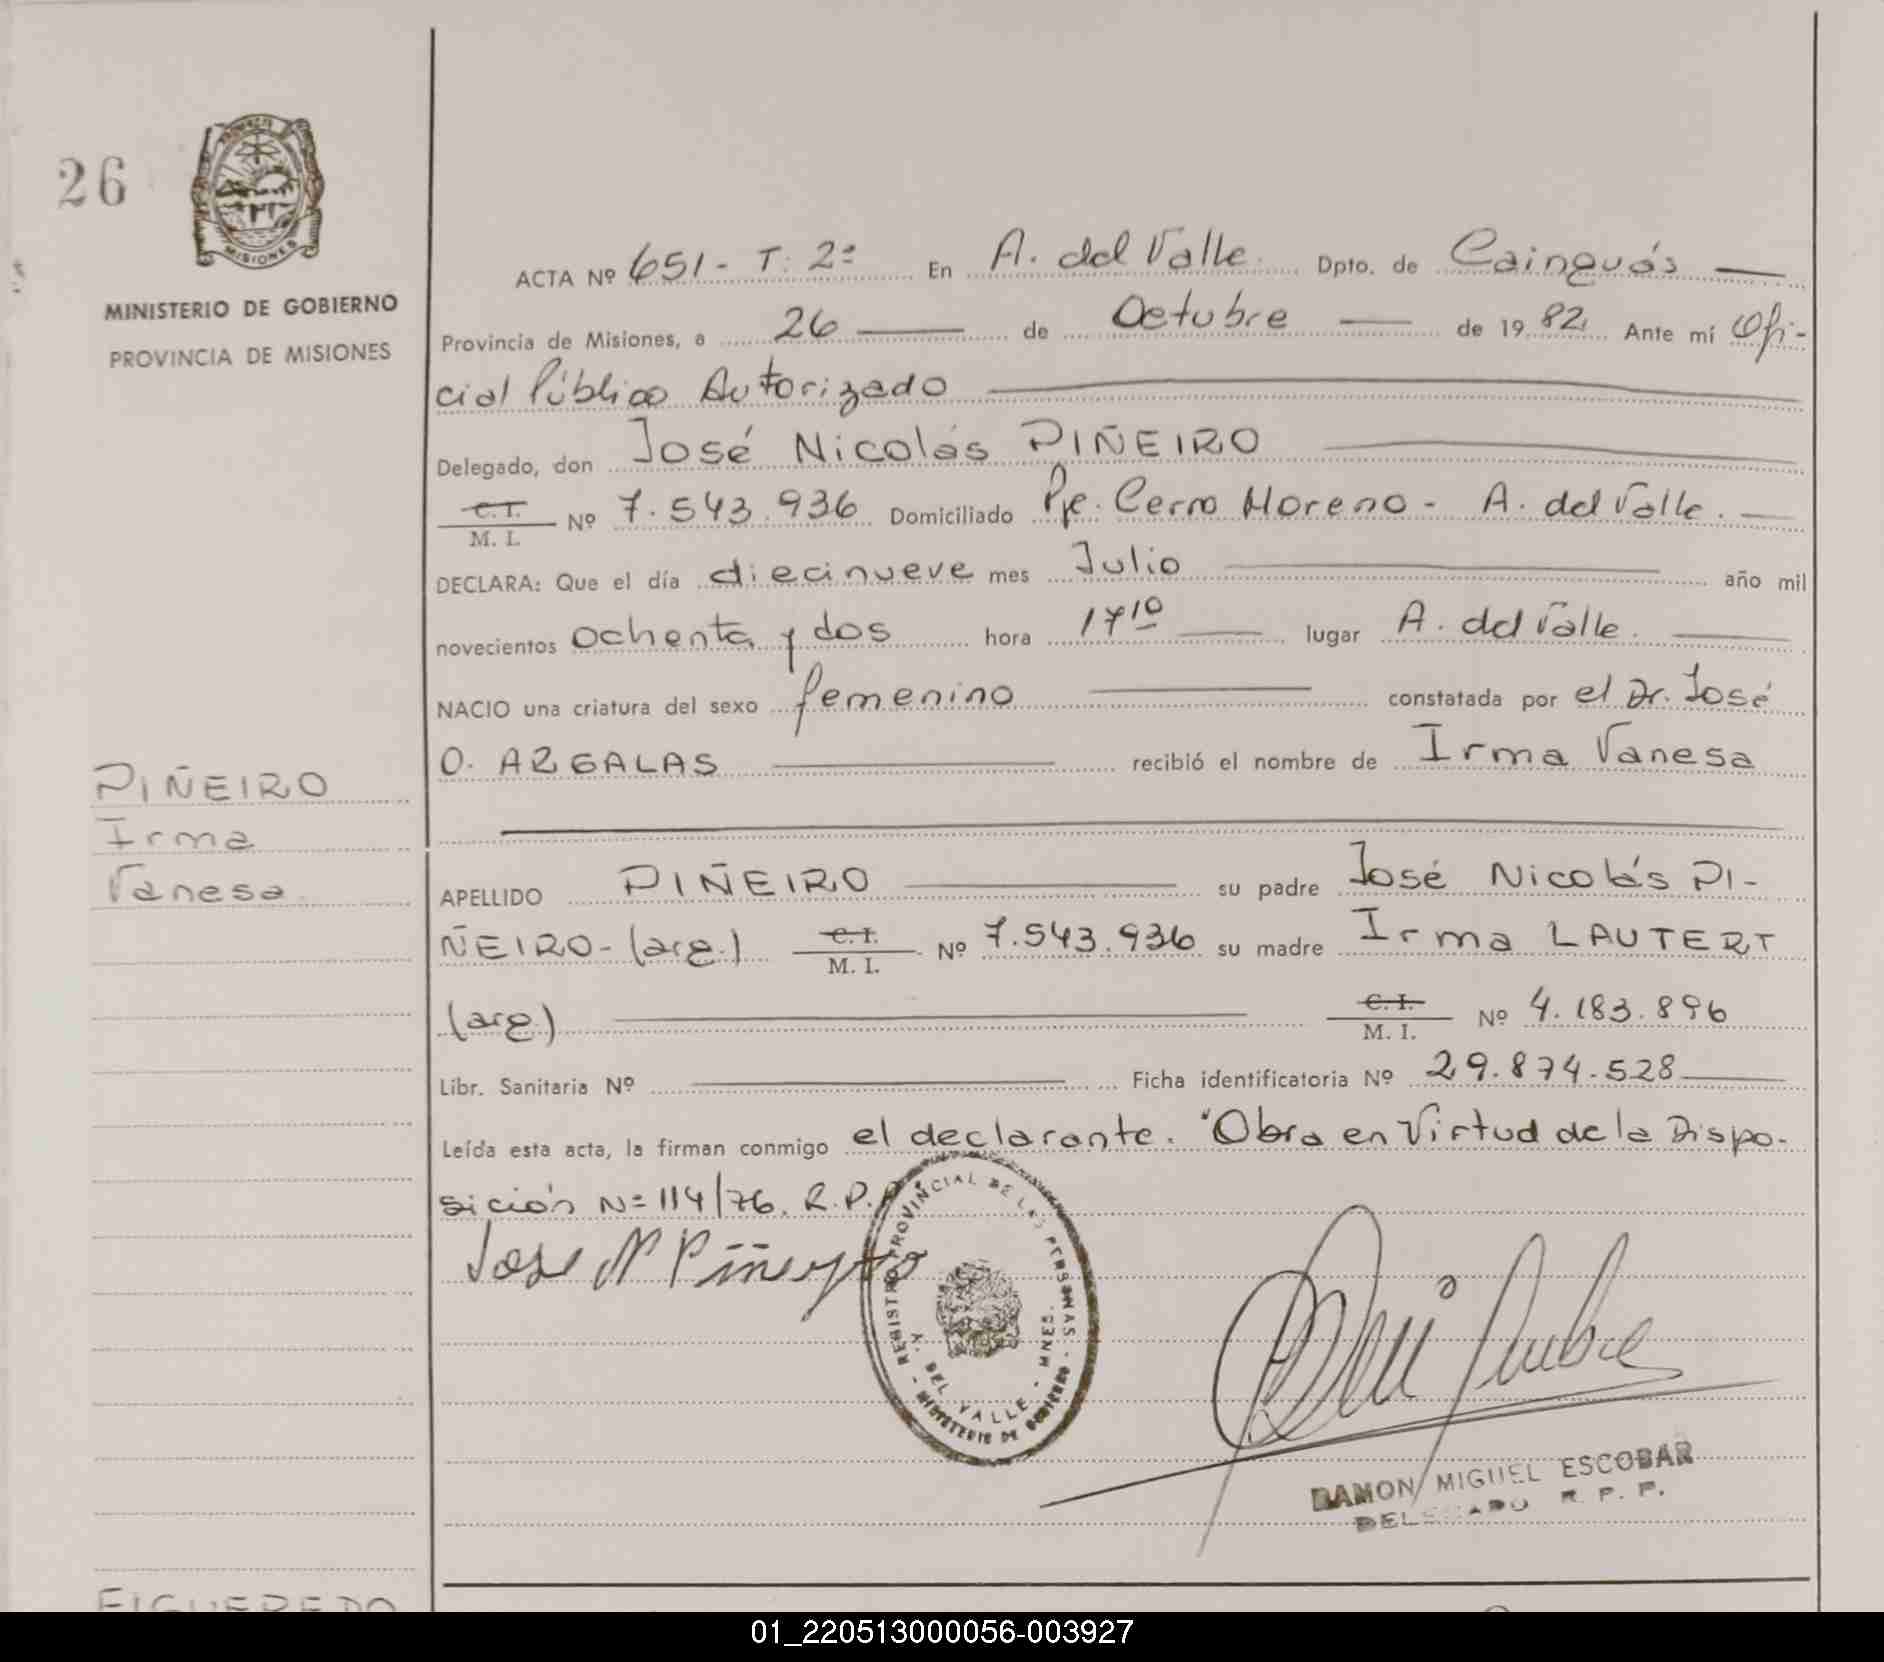 26
MISIONES
MINISTERIO DE GOBIERNO
PROVINCIA DE MISIONES
ACTA Nº 651 - T: 2º En A. del Valle Dpto. de Cainguás
Provincia de Misiones, a 26 de Octubre de 1982 Ante mí Ofi-
cial Público Autorizado
Delegado, don José Nicolás PIÑEIRO
C.I.
M. I. Nº 7.543.936 Domiciliado Pje. Cerro Moreno - A. del Valle.
DECLARA: Que el día diecinueve mes Julio año mil
novecientos ochenta y dos hora 17¹⁰ lugar A. del Valle.
NACIO una criatura del sexo femenino constatada por el Dr. José
O. ARGALAS recibió el nombre de Irma Vanesa
PIÑEIRO
Irma
Vanesa
APELLIDO PIÑEIRO su padre José Nicolás PI-
ÑEIRO - (arg.) C.I. M. I. Nº 7.543.936 su madre Irma LAUTERT
(arg.) C.I. M. I. Nº 4.183.896
Libr. Sanitaria Nº Ficha identificatoria Nº 29.874.528
Leída esta acta, la firman conmigo el declarante. "Obra en Virtud de la Dispo-
sición Nº 114/76. R.P.P.
José N Piñeyro
REGISTRO PROVINCIAL DE LAS PERSONAS - MINISTERIO DE GOBIERNO -
A. DEL VALLE - MNES.
RAMON MIGUEL ESCOBAR
DELEGADO R. P. P.
FIGUEREDO
01_220513000056-003927